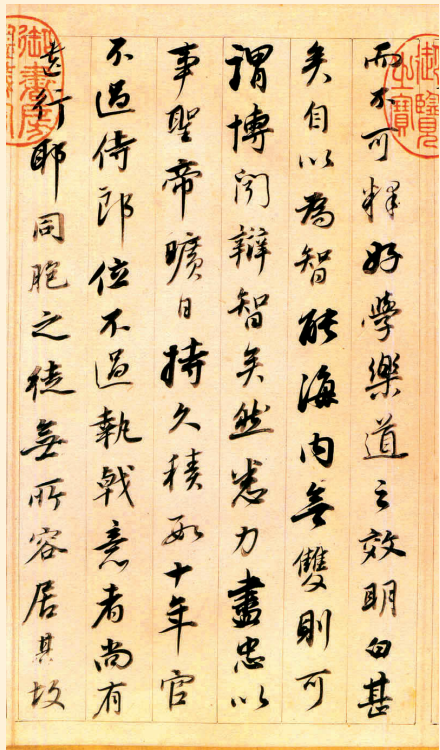 而不可釋好學樂道之效明白甚
矣自以為智能海内無雙則可
謂博聞辯智矣然悉力盡忠以
事聖帝曠日持久積數十年官
不過侍郎位不過執戟意者尚有
遺行耶同胞之徒無所容居其故
御覽之寶
御書房